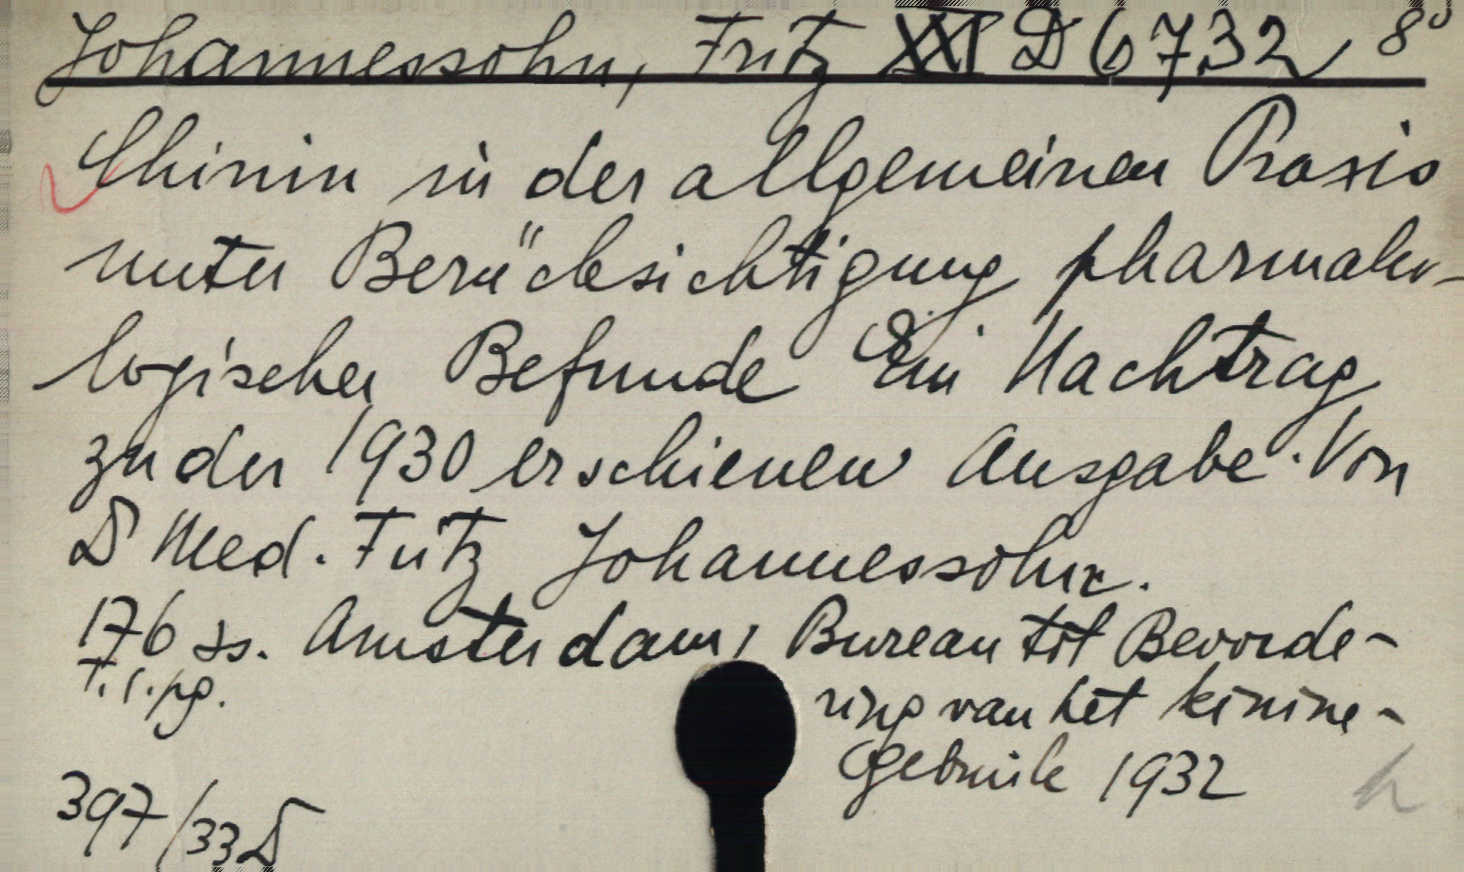 Johannessohn, Fritz XXI D 6732 8°
Chinin in der allgemeinen Praxis
unter Berücksichtigung pharmako-
logischer Befunde Ein Nachtrag
zu der 1930 erschienen Ausgabe. Von
D Med. Fritz Johannessohn.
176 ss. Amsterdam, Bureau tot Bevorde-
T. i. pg. ring van het kinine-
gebruik 1932
h
397/33 D